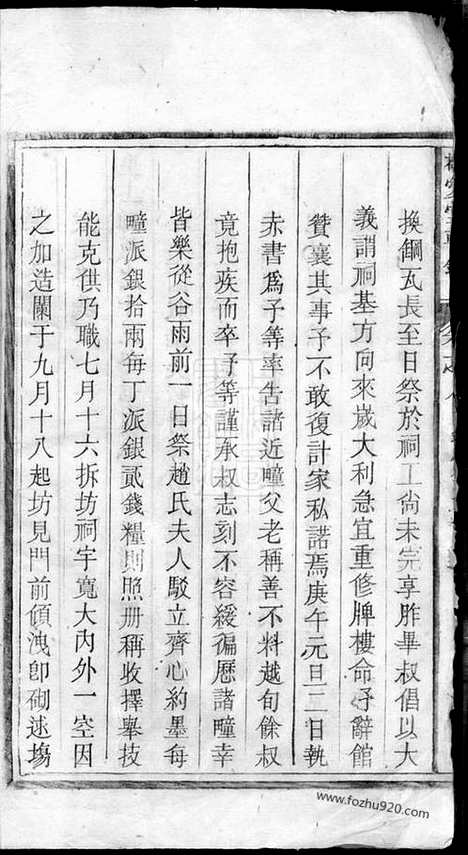 換鋼瓦長至日祭於祠工尙未完享胙畢叔倡以大
義謂祠基方向來歲大利急宜重修牌樓命予辭館
贊襄其事予不敢復計家私諾焉庚午元旦二日執
赤書爲予等率告諸近疃父老稱善不料越旬餘叔
竟抱疾而卒予等謹承叔志刻不容緩徧歷諸疃幸
皆樂從谷雨前一日祭趙氏夫人駁立齊心約墨每
疃派銀拾兩每丁派銀貳錢糧則照册稱收擇舉技
能克供乃職七月十六拆坊祠宇寬大內外一空因
之加造闌于九月十八起坊見門前傾洩卽砌逑塲
www.fozhu920.com